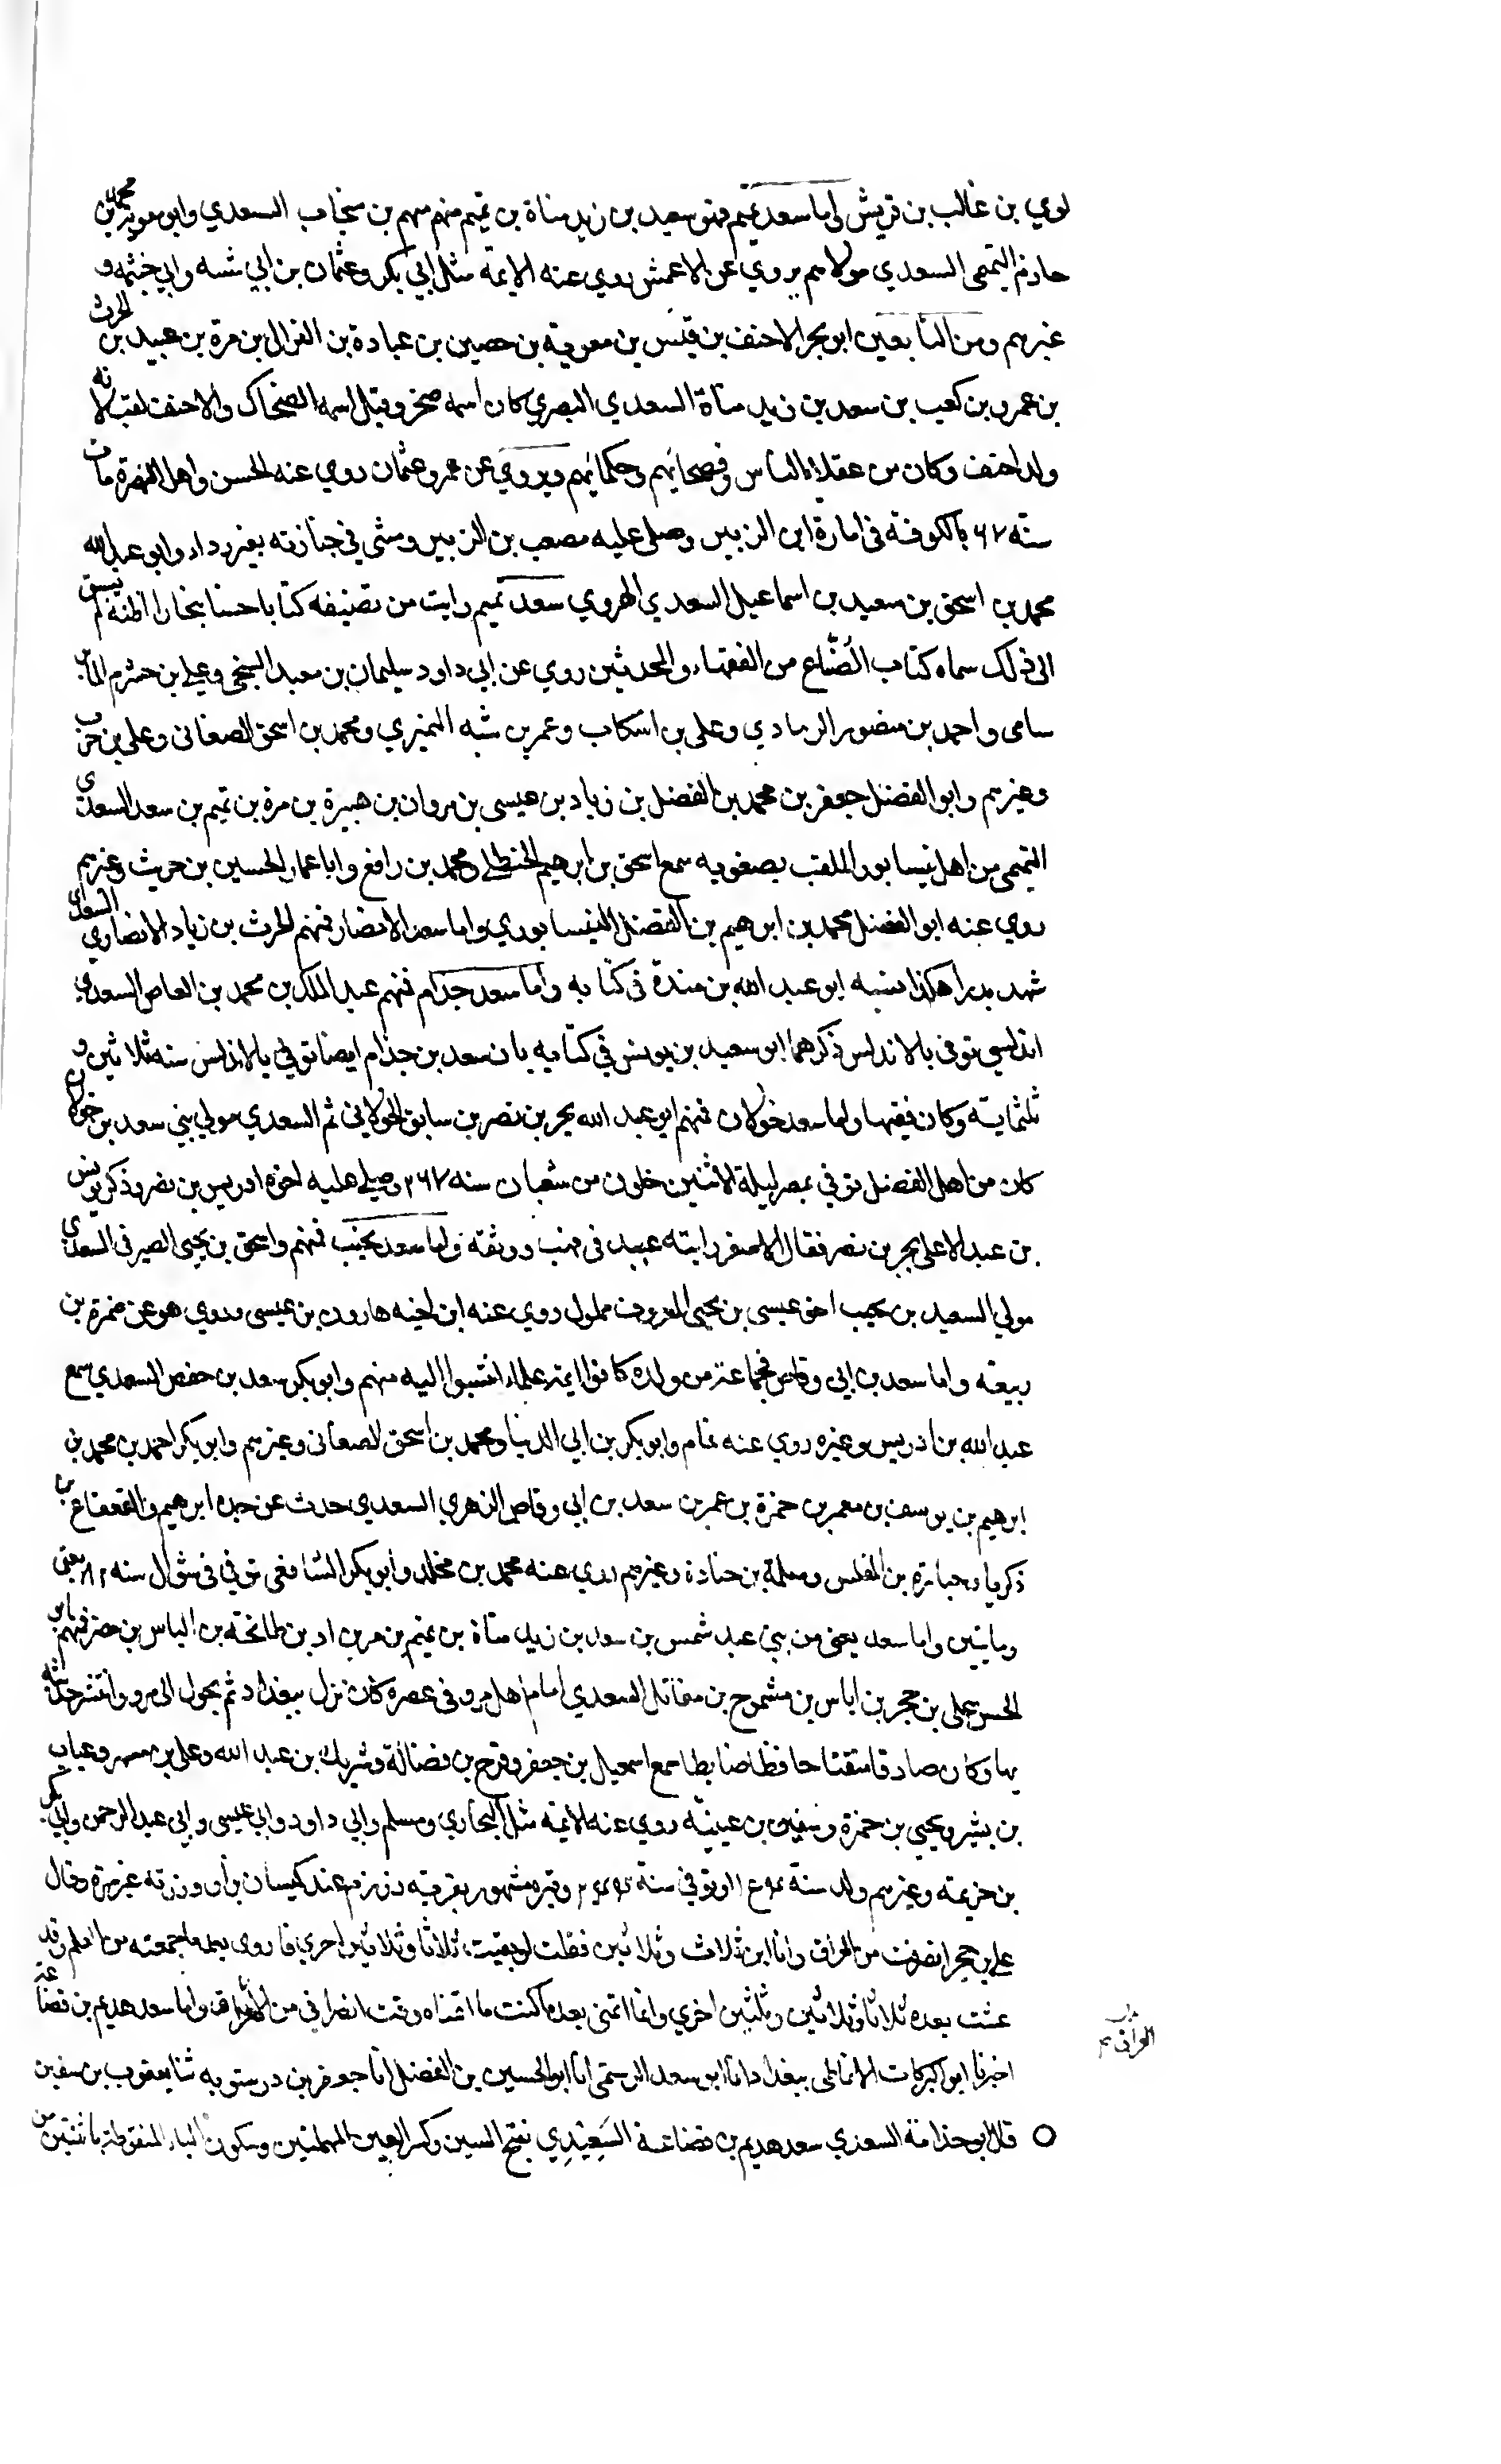 لوي بن غالب بن قريش اما سعد تميم فهو سعد بن زيد مناة بن تميم منهم سهم بن منجاب السعدي وابو معوية محمد بن
حازم التميمى السعدي مولاهم يروي عن الاعمش روي عنه الايمة مثل ابي بكر وعثمان بن ابي شيبه وابي خيثمه و
غيرهم ومن التابعين ابو بحر الاحنف بن قيس بن معوية بن حصين بن عبادة بن النزال بن مرة بن عبيد بن الحرث
بن عمرو بن كعب بن سعد بن زيد مناة السعدي البصري كان اسمه صخر وقيل اسمه الضحاك والاحنف لقب لانه
ولد احنف وكان من عقلاء الناس وفصحائهم وحكمائهم ويروي عن عمر وعثمان روي عنه الحسن واهل البصرة مات
سنة ٦٧ بالكوفة فى امارة ابن الزبير وصلى عليه مصعب بن الزبير ومشى في جنازته بغير رداء وابو عبد الله
محمد بن اسحق بن سعيد بن اسماعيل السعدي الهروي سعد تميم رايت من تصنيفه كتابا حسنا بخارا اظنه لم يسبق
الى ذلك سماه كتاب الصُّنّاع من الفقهاء والمحدثين روي عن ابي داود سليمان بن معبد السنجي وعلي بن خشرم الماير
سامى واحمد بن منصور الرمادي وعلى بن اشكاب وعمر بن شبه النميري ومحمد بن اسحق الصغانى وعلى بن حرب
وغيرهم وابو الفضل جعفر بن محمد بن الفضل بن زياد بن عيسى بن مروان بن هبيرة بن مرة بن تميم بن سعد السعدي
التميمى من اهل نيسابور الملقب بصغويه سمع اسحق بن ابرهيم الحنظلي ومحمد بن رافع وابا عمار الحسين بن حريث وغيرهم
روي عنه ابو الفضل محمد بن ابرهيم بن الفضل النيسابوري واما سعد الانصار فمنهم الحرث بن زياد الانصاري السعدي
شهد بدرا هكذا نسبه ابو عبد الله بن مندة فى كتابه واما سعد جذام فمنهم عبد الملك بن محمد بن العاص السعدي
اندلسي توفى بالاندلس ذكرهما ابو سعيد بن يونس في كتابه بان سعد بن جذام ايضا توفي بالاندلس سنه ثلاثين و
ثلثماية وكان فقيها واما سعد خولان فمنهم ابو عبد الله بحر بن نصر بن سابق الخولانى ثم السعدي مولي بني سعد بن خولان
كان من اهل الفضل توفي بمصر ليلة الاثنين خلون من شعبان سنه ٢٦٧ وصلي عليه اخوه ادريس بن نصر وذكر يونس
بن عبد الاعلى بحر بن نصر فقال الاصفر رايته عبيد فى ووثقه واما سعد بجنب فمنهم واسحق بن يحيى الصيرفى السعدي
مولي السعيد بن بجيب اخو عيسى بن يحيى المعروف مملول روي عنه ابن اخيه هارون بن عيسى وروي هو عن ضمرة بن
ربيعة واما سعد بن ابى وقاص فجماعة من ولده كانوا ايمة علماء انتسبوا اليه منهم وابو بكر سعد بن حفص السعدي سمع
عبد الله بن ادريس وغيره روي عنه تمام وابو بكر بن ابي الدنيا ومحمد بن اسحق الصغانى وغيرهم وابو بكر احمد بن محمد بن
ابرهيم بن يوسف بن معمر بن حمزة بن عمر بن سعد بن ابي وقاص الزهري السعدي حدث عن جده ابرهيم والقعقاع بن
ذكريا وجبارة بن المغلس ومسلمة بن جنادة وغيرهم روي عنه محمد بن مخلد وابو بكر الشافعى توفي فى شوال سنه ٨٢ يعنى
وماتين واما سعد يعنى من بني عبد شمس بن سعد بن زيد مناة بن تميم بن مر بن اد بن طابخة بن الياس بن مضر فمنهم ابو
الحسن على بن حجر بن اياس بن مشموج بن مقاتل السعدي امام اهل مرو فى عصره كان نزل ببغداد ثم تحول الى مرو وانتشر حديثه
بها وكان صادقا متقنا حافظا ضابطا سمع اسمعيل بن جعفر وفرج بن فضالة وشريك بن عبد الله وعلى بن مسهر وعتاب
بن بشير ويحيى بن حمزة وسفين بن عيينة روي عنه الائمة مثل البخاري ومسلم وابي داود وابي عيسى وابي عبد الرحمن وابي بكر
بن خزيمة وغيرهم ولد سنة وتوفي سنة وقبره مشهور بقرية زرزم عند كيسان وزرته غير مرة وقال
علي بن حجر انصرفت من العراق وانا ابن ثلاث وثلاثين فقلت لو بقيت ثلاثا وثلاثين اخري فاروى بعض ما جمعته من العلم وقد
عشت بعده ثلاثا وثلاثين وثلثين اخري وانا اتمنى بعد ما كنت اتمناه وقت انصرافي من العراق واما سعد هديم بن قضاعة
العراق
اخبرنا ابو البركات الانماطى ببغداد انا ابو سعد الرستمى انا ابو الحسين بن الفضل انا جعفر بن درستويه ثنا يعقوب بن سفين
○ قال ابو حذامة السعدي سعد هديم بن قضاعة السَعِيْدِي بفتح السين وكسر العين المهملتين وسكون الياء المنقوطة باثنتين من